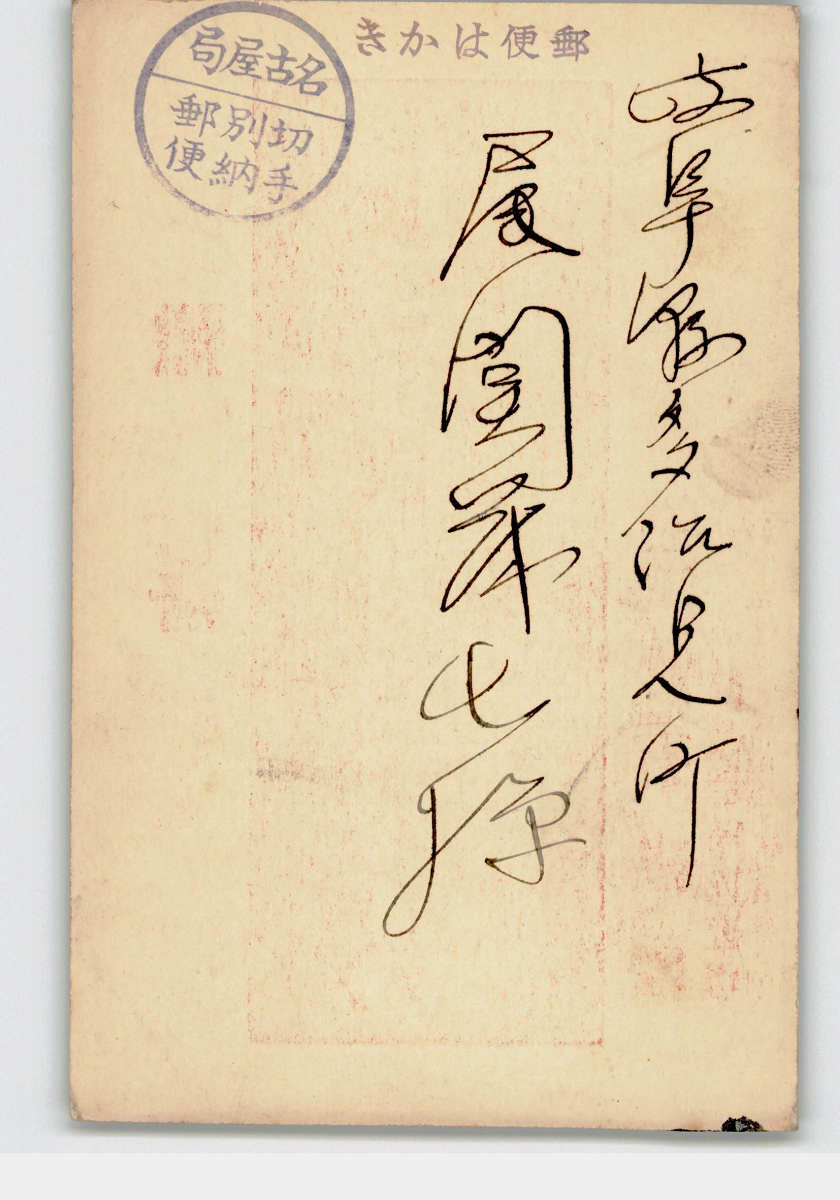 郵便はかき
名古屋局
切手別納郵便
岐阜縣多治見町
尾関茂七様